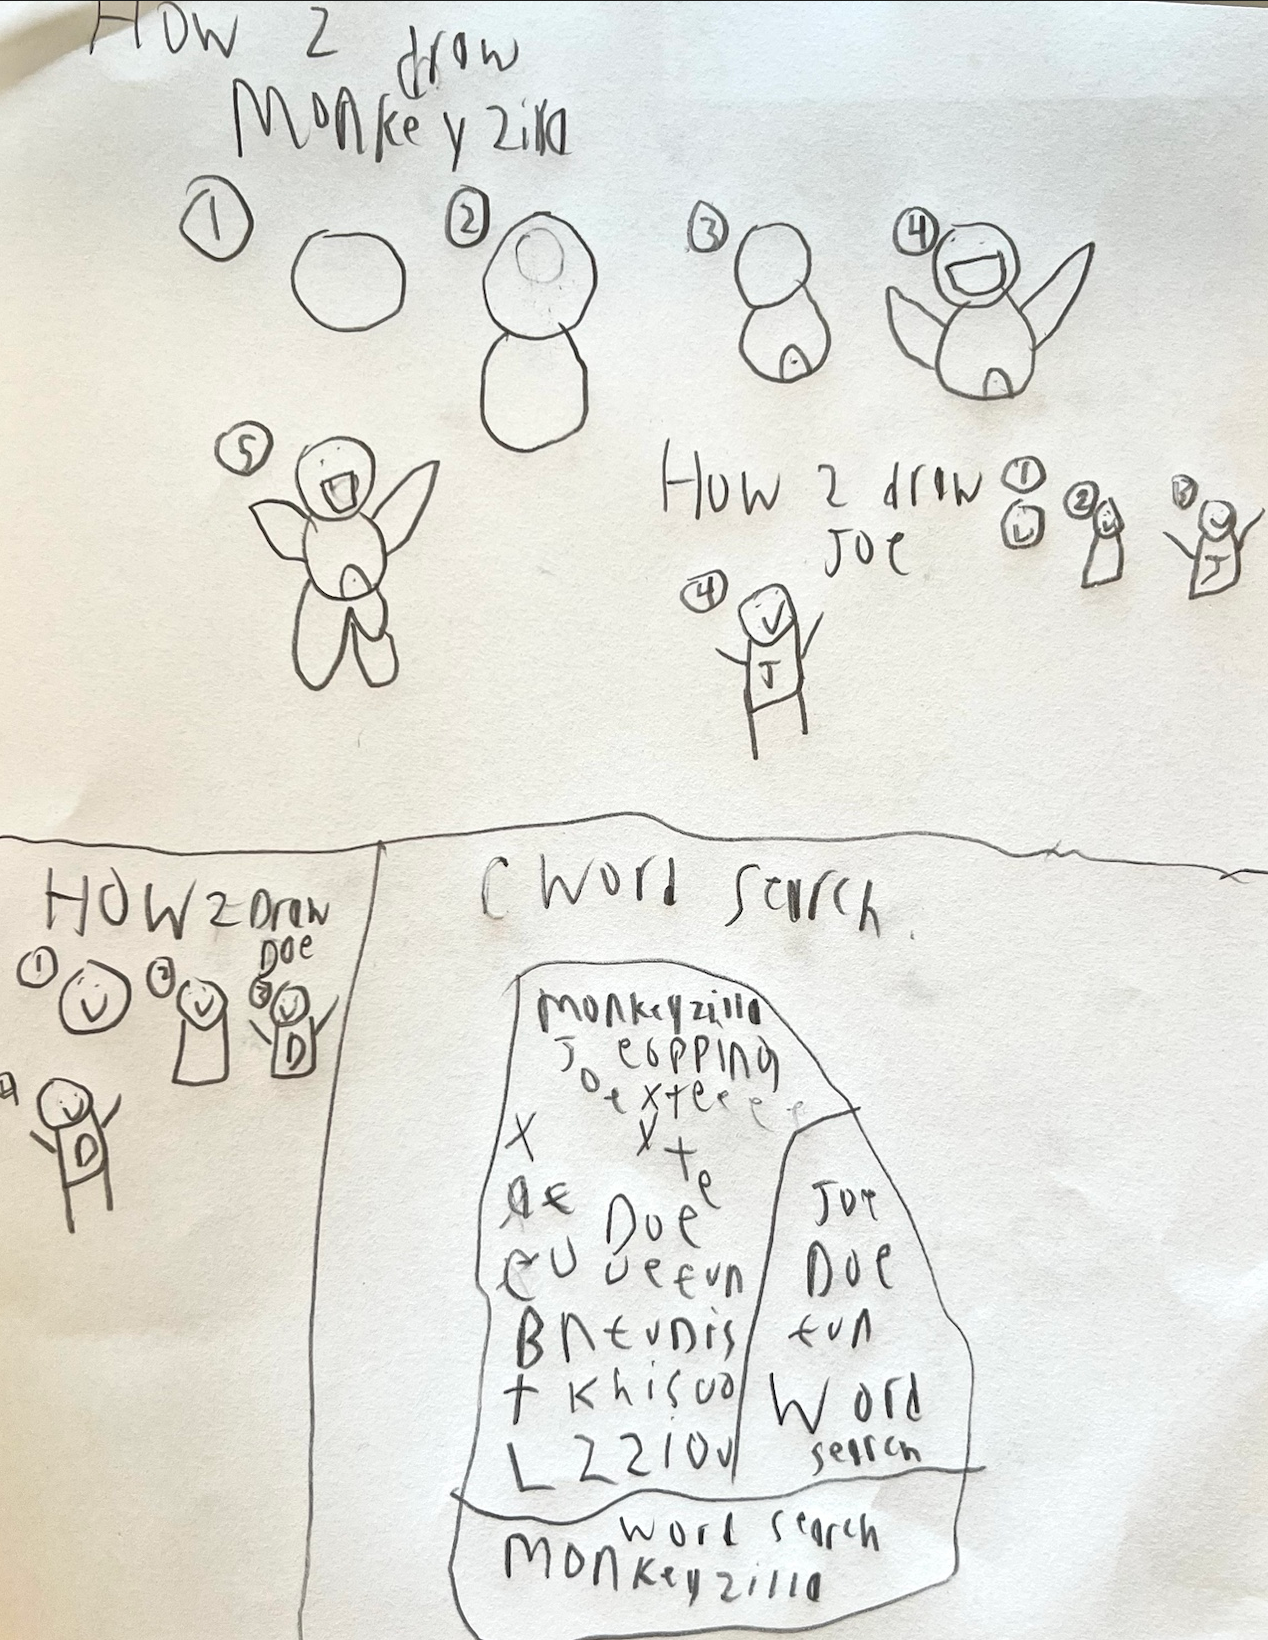 How 2 draw
Monkeyzilla
1
2
3
4
5
How 2 draw
Joe
1
2
3
J
4
J
How 2 Draw
Doe
1
2
3
D
4
D
Word search
monkeyzilla
J eopping
oe xteeee
X x te
e Doe
e U Ueeun
B n t u n i s
t K h i s u o
L 2 2 i 0 u
Joe
Doe
fun
Word
search
word search
monkeyzilla